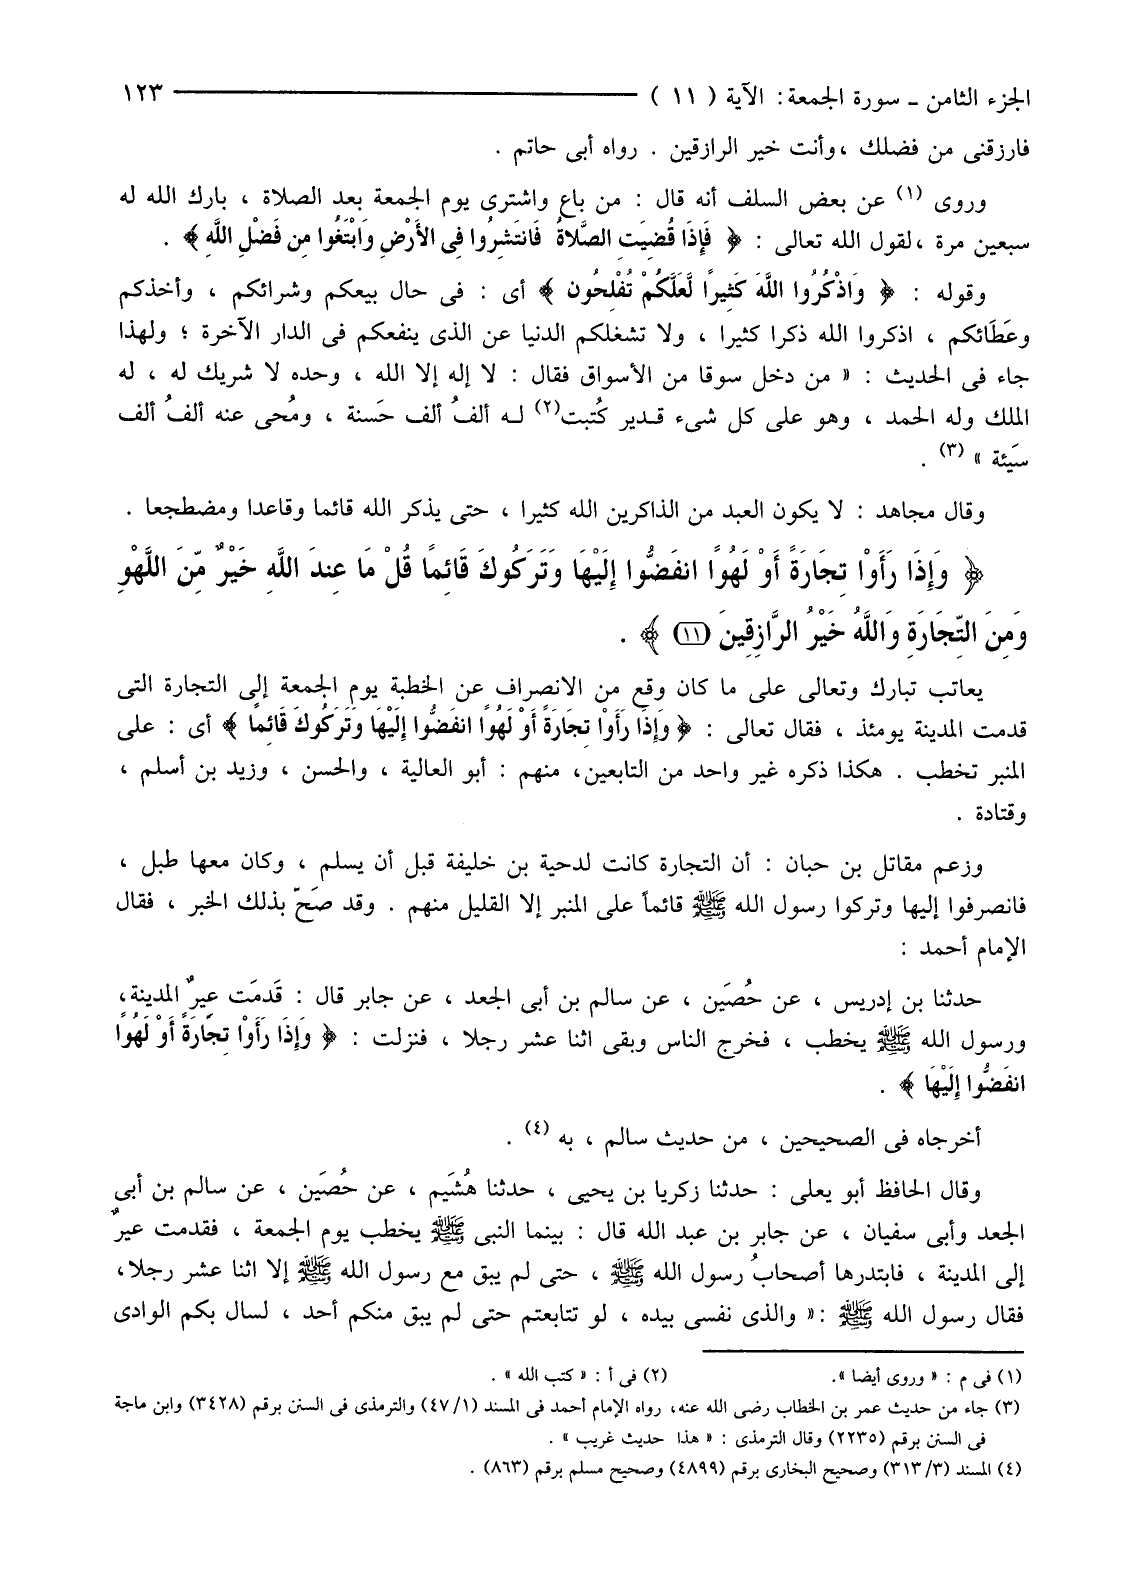 الجزء الثامن ـ سورة الجمعة: الآية ( ١١ ) ١٢٣
فارزقنى من فضلك ،وأنت خير الرازقين . رواه أبى حاتم .
وروى (١) عن بعض السلف أنه قال : من باع واشترى يوم الجمعة بعد الصلاة ، بارك الله له
سبعين مرة ،لقول الله تعالى : ﴿ فَإِذَا قُضِيَتِ الصَّلاةُ فَانتَشِرُوا فِى الأَرْضِ وَابْتَغُوا مِن فَضْلِ اللَّهِ ﴾ .
وقوله : ﴿ وَاذْكُرُوا اللَّهَ كَثِيراً لَّعَلَّكُمْ تُفْلِحُون ﴾ أى : فى حال بيعكم وشرائكم ، وأخذكم
وعَطَائكم ، اذكروا الله ذكرا كثيرا ، ولا تشغلكم الدنيا عن الذى ينفعكم فى الدار الآخرة ؛ ولهذا
جاء فى الحديث : « من دخل سوقا من الأسواق فقال : لا إله إلا الله ، وحده لا شريك له ، له
الملك وله الحمد ، وهو على كل شىء قـدير كُتبت(٢) لـه ألفُ ألف حَسنة ، ومُحى عنه ألفُ ألف
سَيئة » (٣) .
وقال مجاهد : لا يكون العبد من الذاكرين الله كثيرا ، حتى يذكر الله قائما وقاعدا ومضطجعا .
﴿ وَإِذَا رَأَوْا تِجَارَةً أَوْ لَهْوًا انفَضُّوا إِلَيْهَا وَتَرَكُوكَ قَائِمًا قُلْ مَا عِندَ اللَّهِ خَيْرٌ مِّنَ اللَّهْوِ
وَمِنَ التِّجَارَةِ وَاللَّهُ خَيْرُ الرَّازِقِينَ (١١) ﴾ .
يعاتب تبارك وتعالى على ما كان وقع من الانصراف عن الخطبة يوم الجمعة إلى التجارة التى
قدمت المدينة يومئذ ، فقال تعالى : ﴿ وَإِذَا رَأَوْا تِجَارَةً أَوْ لَهْوًا انفَضُّوا إِلَيْهَا وَتَرَكُوكَ قَائِمًا ﴾ أى : على
المنبر تخطب . هكذا ذكره غير واحد من التابعين، منهم : أبو العالية ، والحسن ، وزيد بن أسلم ،
وقتادة .
وزعم مقاتل بن حبان : أن التجارة كانت لدحية بن خليفة قبل أن يسلم ، وكان معها طبل ،
فانصرفوا إليها وتركوا رسول الله ﷺ قائماً على المنبر إلا القليل منهم . وقد صَحّ بذلك الخبر ، فقال
الإمام أحمد :
حدثنا بن إدريس ، عن حُصَين ، عن سالم بن أبى الجعد ، عن جابر قال : قَدمَت عيرٌ المدينة،
ورسول الله ﷺ يخطب ، فخرج الناس وبقى اثنا عشر رجلا ، فنزلت : ﴿ وَإِذَا رَأَوْا تِجَارَةً أَوْ لَهْوًا
انفَضُّوا إِلَيْهَا ﴾ .
أخرجاه فى الصحيحين ، من حديث سالم ، به (٤) .
وقال الحافظ أبو يعلى : حدثنا زكريا بن يحيى ، حدثنا هُشَيم ، عن حُصَين ، عن سالم بن أبى
الجعد وأبى سفيان ، عن جابر بن عبد الله قال : بينما النبى ﷺ يخطب يوم الجمعة ، فقدمت عيرٌ
إلى المدينة ، فابتدرها أصحابُ رسول الله ﷺ ، حتى لم يبق مع رسول الله ﷺ إلا اثنا عشر رجلا،
فقال رسول الله ﷺ :« والذى نفسى بيده ، لو تتابعتم حتى لم يبق منكم أحد ، لسال بكم الوادى
(١) فى م : « وروى أيضا ». (٢) فى أ : « كتب الله » .
(٣) جاء من حديث عمر بن الخطاب رضى الله عنه، رواه الإمام أحمد فى المسند (٤٧/١) والترمذى فى السنن برقم (٣٤٢٨) وابن ماجة
فى السنن برقم (٢٢٣٥) وقال الترمذى : « هذا حديث غريب » .
(٤) المسند (٣١٣/٣) وصحيح البخارى برقم (٤٨٩٩) وصحيح مسلم برقم (٨٦٣) .